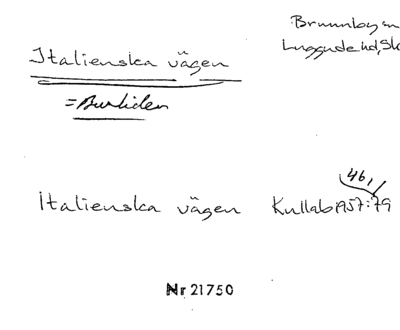 Brunnby sn
Luggude hd, Sk
Italienska vägen
= Burliden
46,
Italienska vägen Kullab 1957: 79
Nr 21750